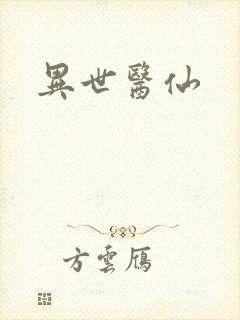 異世醫仙
方雲雁